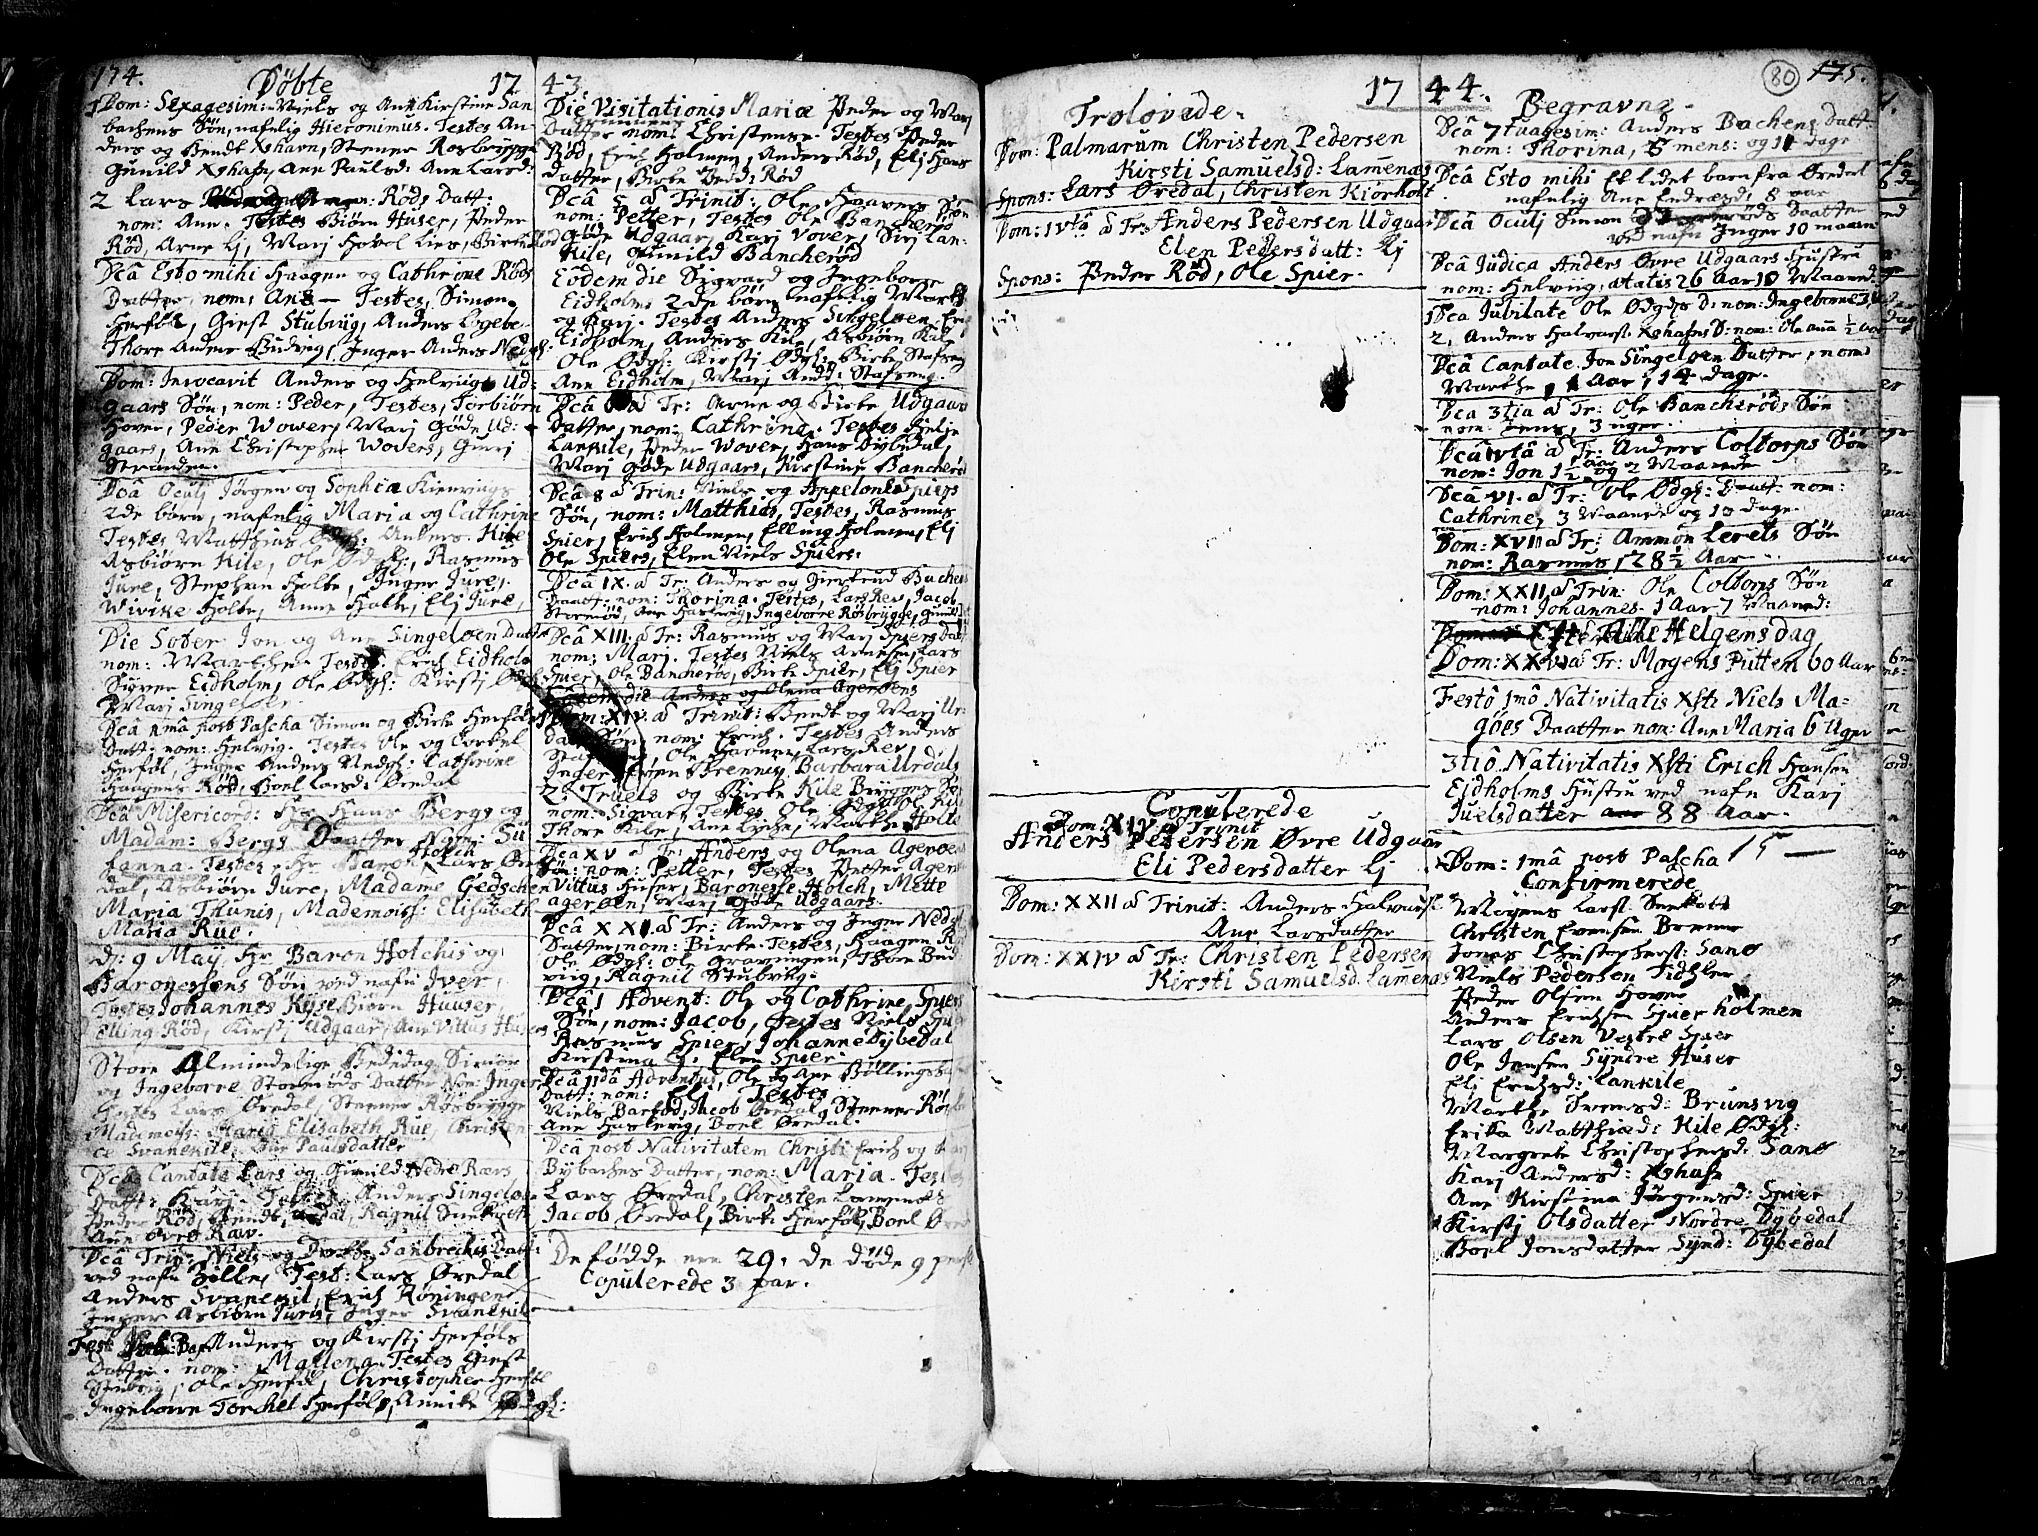 174.
Döbte 17
Dom: Sexagesim: Niels og Ane Kirstine San
bachens Sön, nafnlig Hieronimus. Testes An
ders og Bendt Xshavn, Steener Rosbrygge
Gunild Xshafn, Ane Paulsd: Ane Larsd:
2 Lars Röds Datt:
nom: Ane. Testes Biörn Huser, Peder
Röd, Arne Lj, Marj Hovel Lies, Birte Röd
Dcâ Esto mihi Haagen og Cathrine Röds
Datter, nom: Ane — Testes, Simon
Herföl, Giest Stubvig, Anders Logebe
Thore Anders Budvig, Inger Anders Nedgs:
Dom: Invocavit Anders og Helvig Ud:
gaars Sön, nom: Peder, Testes, Torbiörn
Hover, Peder Wover, Marj Göde Ud:
gaars, Ane Christopher Wovers, Gurj
Stranden.
Dcâ Oculj Jörgen og Sophia Kienvigs
2de börn, nafnlig Maria og Cathrine
Testes Matthias Anders Kile
Asbiörn Kile, Ole Ødgs:, Rasmus
Jure, Stephan Holte, Inger Jure,
Wivike Holte, Anne Holte, Elj Jure,
Die Soter Jon og Ane Singelöen Datt
nom: Marthe. Testes Erich Eidholm
Syver Eidholm, Ole Ødgs: Kirstj Ødgs
Marj Singelöe.
Dcâ 1mâ post Pascha Simon og Birte Herföls
Datt: nom: Helvig. Testes Ole og Torkel
Herföl, Inger Anders Nedgs: Cathrine
Haagens Röd, Boel Larsd: Øredal
Dcâ Misericord: Hr Hans Bergs og
Madam: Bergs Daatter Nom: Su
sanna. Testes Hr Baron Holch Lars Øre
dal, Asbiörn Jure, Madame Gedschen
Maria Thunis, Mademois: Elisabeth
Maria Rue.
D: 9 Maij Hr Baron Holchis og
Baronessens Sön ved nafn Iver,
Testes Johannes Kyse Biörn Huuser,
Elling Röd, Kirstj Udgaar, Ane Vittus Huser
Store Almindelige Bededag Simon
og Ingeborre Storeröds Datter Nom: Inger
Testes Lars Øredal, Steener Rösbrygge
Mademois: Maria Elisabeth Rue, Christen
Svanekil, Paulsdatter
Dcâ Cantate Lars og Gunild Nedre Ræv
Datt: Karj. Testes Anders Singelöe
Peder Röd, Bendt Urdal, Ragnil Smekatt
Ane Øvre Ræv.
Dcâ Trin: Niels og Dorthe Sandbrechis Datt:
ved nafn Helle, Test: Lars Øredal
Anders Svanekil, Erich Röningen
Inger Asbiörn Juris, Inger Svanekil
Anders og Kirstj Herföls
Datter nom: Mallena. Testes Giest
Stubvig, Ole Herföl, Christopher Herföl
Ingeborre Torchel Herföls, Annike
43.
Die Visitationis Mariæ Peder og Marj
Datter nom: Christense. Testes Peder
Röd, Erich Holmen, Anders Röd, Elj Hans
datter, Birte Pedd: Röd
Dcâ 5 a Trinit: Ole Haavers Sön
nom: Petter, Testes Ole Bancheröd
Göde Udgaar, Karj Vover, Sirj Lan-
kile, Gunild Bancherød
Eodem die Sigvard og Ingeborre
Eidholm 2de börn nafnlig Marthe
og Karj. Testes Anders Singelöen, Erich
Eidholm, Anders Kile, Asbiörn Kile
Ole Ødgs: Kirstj Ødgs: Birte Stafseng
Ane Eidholm, Marj Andd: Stafseng.
Dcâ 6 a Tr: Arne og Birte Udgaars
Datter, nom: Cathrina. Testes Helje
Lankile, Peder Wover, Hans Dybedal,
Marj Göde Udgaars, Kirstine Bancheröd
Dcâ 8 a Trin: Niels og Appelone Spiers
Sön, nom: Matthias, Testes, Rasmus
Spier, Erich Holmen, Elling Holmen, Elj
Ole Spiers, Elen Niels Spiers.
Dcâ IX. a Tr: Anders og Giertrud Bachens
Daatt: nom: Thorina. Testes, Lars Rev, Jacob
Storeröd, Ane Haslevig, Ingeborre Rösbrygge, Gunild
Dcâ XIII. a Tr: Rasmus og Marj Spiers Datt
nom: Marj. Testes Niels Arnesen, Lars
Spier, Ole Bancheröd, Birte Spier, Elj Spier
Eodem die Anders og Olena Ageröens
Dom: XIV. a Trinit: Bendt og Marj Ur-
dals Sön, nom: Erich. Testes Anders
Ole Lars Rev
Inger Brennen, Barbara Urdals
2. Truels og Birte Kile Brygges Sön
nom: Sigvar, Testes Ole Ødgs, Ole Kile
Thore Kile, Ane Lyche, Marthe Holte
Dca XV a Tr: Anders og Olena Ageröens
Sön: nom: Petter, Testes Petter Ageröen
Vittus Huser, Baronesse Holch, Mette
ageröen, Marj Göde Udgaars.
Dcâ XXI. a Tr: Anders og Inger Nedgs
Datter, nom: Birte. Testes, Haagen Röd
Ole Ødgs: Ole Gravningen, Thore Bud
viig, Ragnil Stubviig.
Dcâ 1 Advent: Ole og Cathrine Spiers
Sön, nom: Jacob, Testes Niels Spier
Rasmus Spier, Johanne Dybedal
Kirstina Lj. Elen Spier
Dcâ 11dâ Adventus, Ole og Ane Böllings
Datt: nom: Elj. Testes
Niels Barföd, Jacob Øredal, Steener Rös
Ane Haslevig, Boel Øredal.
Dcâ post Nativitatem Christi Erich og
Bybaches Datter, nom: Maria. Testes
Lars Øredal, Christen Lamenæs
Jacob Øredal, Birte Herföl, Boel Øre
De födde ere 29. de döde 9 pers
Copulerede 3 par.
17 44.
Trolovede.
Dom: Palmarum Christen Pedersen
Kirsti Samuelsd: Lamenæs
Spons: Lars Øredal, Christen Kiörholt
Dom: 1vtâ a Tr: Anders Pedersen Udgaar
Elen Pedersdatt: Lj
Spons: Peder Röd, Ole Spier.
Copulerede
Dom: XIV a Trinit
Anders Pedersen Øvre Udgaar
Eli Pedersdatter Lj
Dom: XXII a Trinit: Anders Halvors
Ane Larsdatter
Dom: XXIV a Tr: Christen Pedersen
Kirsti Samuelsd. Lamenæs
80 175.
Begravne.
Dcâ 7tuagesim: Anders Bachens Datt.
nom: Thorina, 5 mens: og 11 dage
Dcâ Esto mihi Et lidet barn fra Øredal
nafnlig Ane Endresd, 8 aar
Dcâ Oculj Simon Storeröds Daatter
ved nafn Inger 10 maan
Dcâ Judica Anders Øvre Udgaars Hustru
nom: Helvig, ætatis 26 aar 10 Maaned
1 Dca Jubilate Ole Ødgds D: nom: Ingeborre 3
2, Anders Halvorst. Xshafns S: nom: Ole ½ aar
Dcâ Cantate Jon Singelöen Datter, nom:
Marthe, 1 Aar, 14 dage.
Dca 3tia a Tr: Ole Bancheröds Sön
nom: Jens, 3 uger.
Dcâ 1vtâ a Tr: Anders Coltorps Sön
nom: Jon 1½ aar og 2 Maanede
Dcâ VI. a Tr: Ole Ødgs: Datt: nom:
Cathrine, 3 Maanede og 10 dage.
Dom: XVII a Tr: Ammon Lerels Sön
nom: Rasmus, 28½ Aar
Dom: XXII a Trin. Ole Coltorps Sön
nom: Johannes. 1 Aar 7 Maaned:
Alle Helgens dag
Dom: XXV a Tr: Mogens Putten 60 Aar
Festô 1mô Nativitatis Xsti Niels Ma-
göes Daatter nom: Ane Maria 6 Uger
3tiô Nativitatis Xsti Erich Hansen
Eidholms Hustru ved nafn Karj
Juelsdatter 88 Aar.
15 —
Dom: 1mâ post Pascha
Confirmerede
Mogens Larst. Smekatt
Christen Evensen Brenne
Jonas Christopherst: Sanö
Niels Pedersen Fidhler
Peder Olsen Hover
Anders Erichsen Spier holmen
Lars Olsen Vestre Spier
Ole Jensen Syndre Huser
Elj Erichsd: Lankile
Marthe Svensd: Brunsvig
Erika Matthiæd: Kile Ødgs:
Margrete Christophersd: Sanö
Karj Andersd: Xshafn
Ane Kirstina Jörgensd: Spier
Kirstj Olsdatter Nordre Dybedal
Boel Jonsdatter Synd: Dybedal